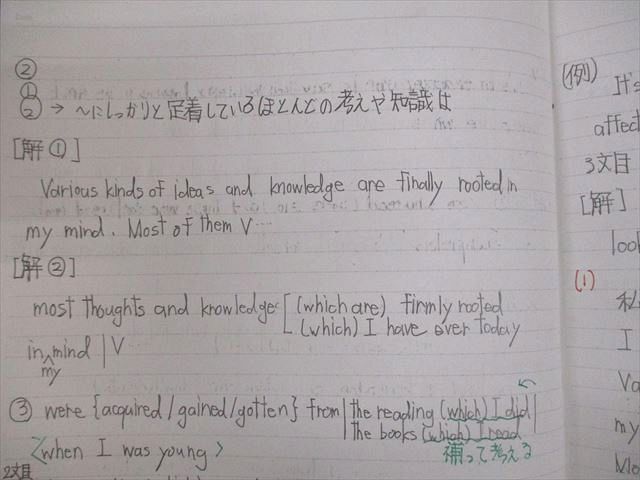 ②
①
② → 〜にしっかりと定着しているほとんどの考えや知識は
[解①]
Various kinds of ideas and knowledge are finally rooted in
my mind. Most of them V…
[解②]
most thoughts and knowledge [(which are) firmly rooted
(which) I have over today
in my mind | V
③ were {acquired/gained/gotten} from | the reading (which) I did |
the books (which) I read
〈when I was young〉 補って考える
2文目
(例)
It's
affect
3文目
[解]
look
(1)
私
I
Va
my
Mo